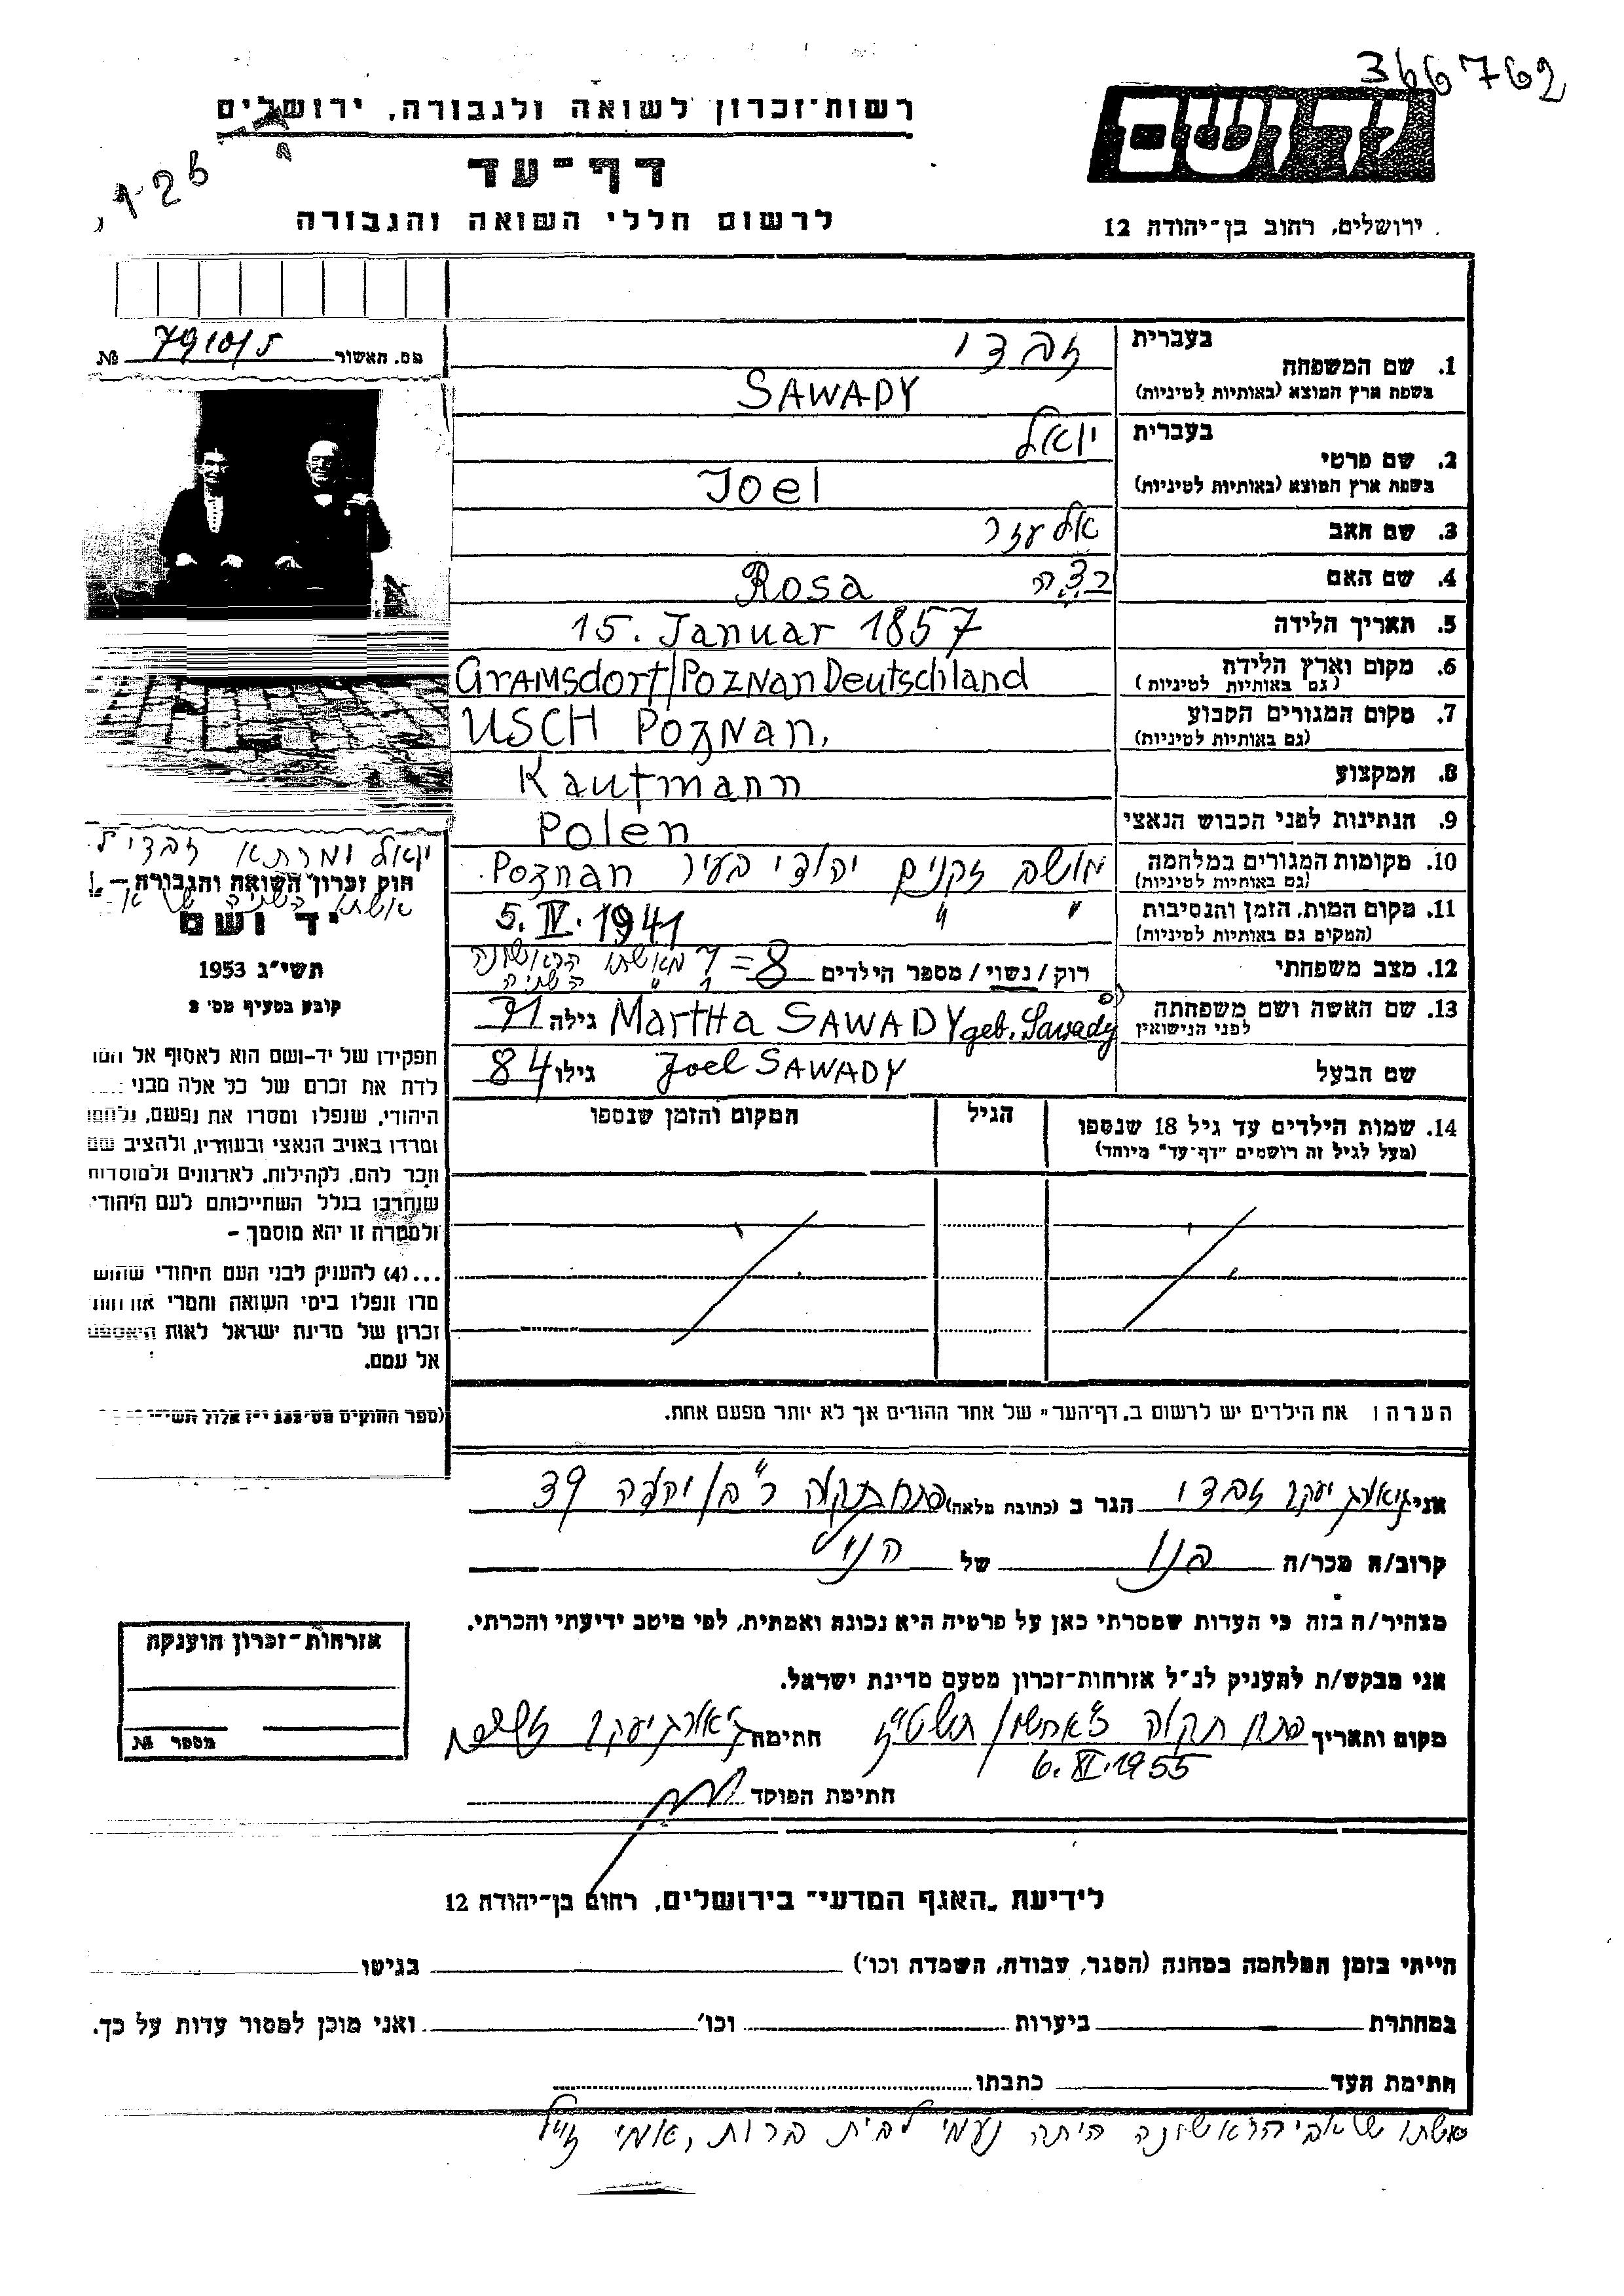 366762
רשות־זכרון לשואה ולגבורה, ירושלים
דף־עד
לרשום חללי השואה והגבורה
126
יד ושם
ירושלים, רחוב בן־יהודה 12
מס. האשור 7910/5 №
1. שם המשפחה
בעברית זבדי
בשפת ארץ המוצא (באותיות לטיניות) SAWADY
2. שם פרטי
בעברית יואל
בשפת ארץ המוצא (באותיות לטיניות) Joel
3. שם האב אלעזר
4. שם האם Rosa
5. תאריך הלידה 15. Januar 1857
6. מקום וארץ הלידה (גם באותיות לטיניות) Gramsdorf/Poznan Deutschland
7. מקום המגורים הקבוע (גם באותיות לטיניות) USCH Poznan.
8. המקצוע Kaufmann
9. הנתינות לפני הכבוש הנאצי Polen
10. מקומות המגורים במלחמה (גם באותיות לטיניות) מושב זקנים יהודי בעיר Poznan.
11. מקום המות, הזמן והנסיבות (המקום גם באותיות לטיניות) " " 5. IV. 1941
12. מצב משפחתי רוק/נשוי/מספר הילדים 8 = 7 מאשתו הראשונה
1 " השניה
13. שם האשה ושם משפחתה לפני הנישואין Martha SAWADY geb. Sawady גילה 71
שם הבעל Joel SAWADY גילו 84
14. שמות הילדים עד גיל 18 שנספו
(מעל לגיל זה רושמים "דף־עד" מיוחד)
הגיל
המקום והזמן שנספו
יואל ומרתא זבדי
חוק זכרון השואה והגבורה –
אשתו השניה של
יד ושם
תשי"ג 1953
קובע בסעיף מס' 2
תפקידו של יד-ושם הוא לאסוף אל
לדת את זכרם של כל אלה מבני
היהודי, שנפלו ומסרו את נפשם, נלחמו
ומרדו באויב הנאצי ובעוזריו, ולהציב שם
וזכר להם, לקהילות, לארגונים ולמוסדות
שנחרבו בגלל השתייכותם לעם היהודי
ולמטרה זו יהא מוסמך –
...(4) להעניק לבני העם היהודי שהוש
מדו ונפלו בימי השואה והמרי אזרחות
זכרון של מדינת ישראל לאות היאספם
אל עמם.
(ספר החוקים מס' 132 י"ז אלול
הערה: את הילדים יש לרשום ב"דף־העד" של אחד ההורים אך לא יותר מפעם אחת.
אני גיאורג יעקב זבדי הגר ב (כתובת מלאה) פתח תקוה 39
קרוב/ה מכר/ה בנו של הנ"ל
מצהיר/ה בזה כי העדות שמסרתי כאן על פרטיה היא נכונה ואמתית, לפי מיטב ידיעתי והכרתי.
אני מבקש/ת להעניק לנ"ל אזרחות־זכרון מטעם מדינת ישראל.
מקום ותאריך פתח תקוה חשון תשט"ז חתימה גיאורג יעקב זבדי
6. XI. 1955
חתימת הפוקד
אזרחות־זכרון הוענקה
מספר №
לידיעת "האגף המדעי" בירושלים, רחוב בן־יהודה 12
הייתי בזמן המלחמה במחנה (הסגר, עבודה, השמדה וכו') בגיטו
במחתרת ביערות וכו' ואני מוכן למסור עדות על כך.
חתימת העד כתבתו
אשתו של אבי הראשונה היתה נעמי לבית ברות, אמי ז"ל